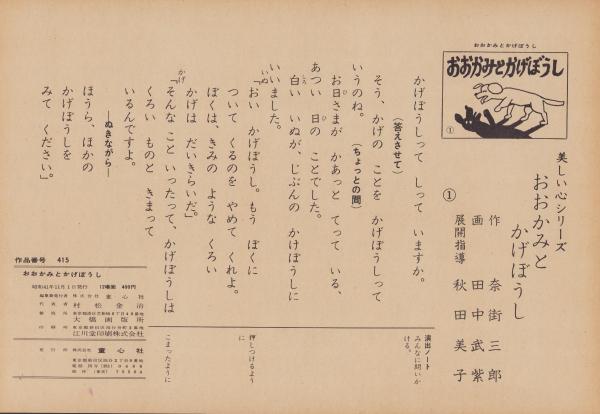 おおかみとかげぼうし
おおかみとかげぼうし
①
美しい心シリーズ
おおかみと
かげぼうし
①
作 奈街三郎
画 田中武紫
展開指導 秋田美子
かげぼうしって しって いますか。
（答えさせて）
そう、かげの ことを かげぼうしって
いうのね。 （ちょっとの間）
お日さまが かあっと てって いる、
あつい 日の ことでした。
白い いぬが、じぶんの かげぼうしに
いいました。
「おい かげぼうし。もう ぼくに
ついて くるのを やめて くれよ。
ぼくは、きみの ような くろい
かげは だいきらいだ。」
「そんな こと いったって、かげぼうしは
くろい ものと きまって
いるんですよ。
―ぬきながら―
ほうら、ほかの
かげぼうしを
みて ください」。
演出ノート
みんなに問いか
ける。
押しつけるよう
に
こまったように
作品番号 415
おおかみとかげぼうし
昭和41年11月1日発行 12場面 400円
編集兼発行者 株式会社 童心社
代表者 村松金治
製版 大橋画版所
印刷所 江川堂印刷株式会社
発行所 株式会社 童心社